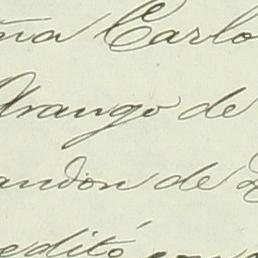 ña Carlo
Arango de
andon de
edito con